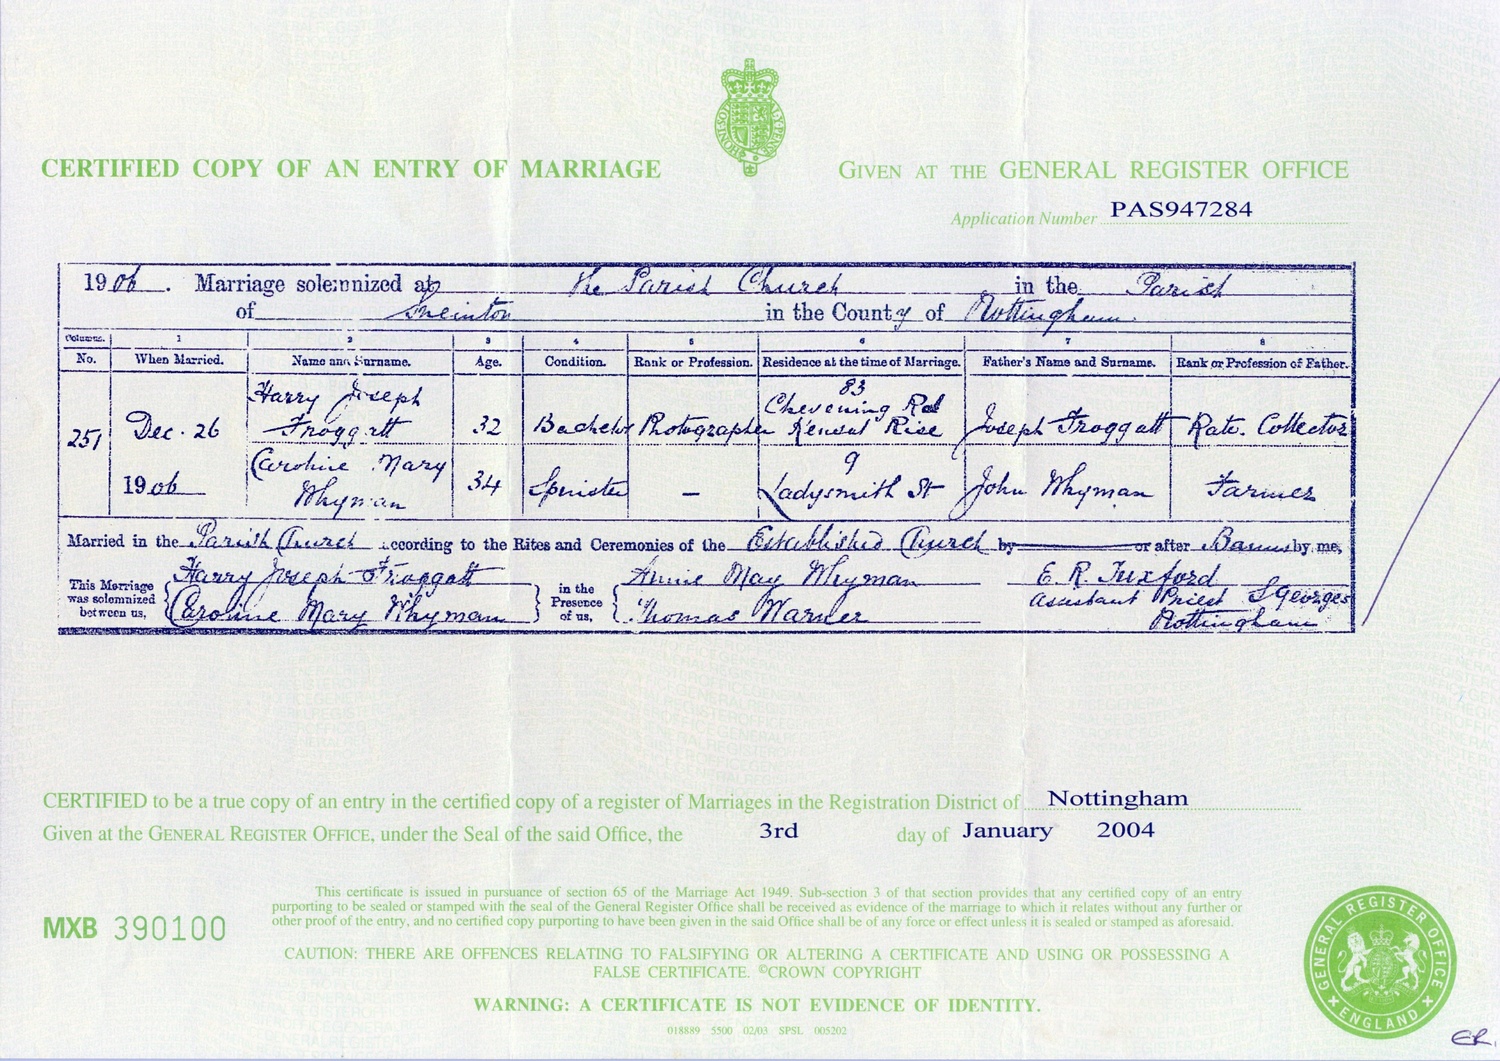 CERTIFIED COPY OF AN ENTRY OF MARRIAGE
GIVEN AT THE GENERAL REGISTER OFFICE
Application Number PAS947284
1906. Marriage solemnized at the Parish Church in the Parish
of Sneinton in the County of Nottingham
Columns. 1 2 3 4 5 6 7 8
No. When Married. Name and Surname. Age. Condition. Rank or Profession. Residence at the time of Marriage. Father's Name and Surname. Rank or Profession of Father.
251 Dec. 26 1906
Harry Joseph Froggatt 32 Bachelor Photographer 83 Chevening Rd Kensal Rise Joseph Froggatt Rate Collector
Caroline Mary Whyman 34 Spinster — 9 Ladysmith St John Whyman Farmer
Married in the Parish Church according to the Rites and Ceremonies of the Established Church by or after Banns by me,
This Marriage was solemnized between us, Harry Joseph Froggatt Caroline Mary Whyman
in the Presence of us, Annie May Whyman Thomas Warner
E. R. Tuxford
Assistant Priest S Georges
Nottingham
CERTIFIED to be a true copy of an entry in the certified copy of a register of Marriages in the Registration District of Nottingham
Given at the GENERAL REGISTER OFFICE, under the Seal of the said Office, the 3rd day of January 2004
This certificate is issued in pursuance of section 65 of the Marriage Act 1949. Sub-section 3 of that section provides that any certified copy of an entry
purporting to be sealed or stamped with the seal of the General Register Office shall be received as evidence of the marriage to which it relates without any further or
other proof of the entry, and no certified copy purporting to have been given in the said Office shall be of any force or effect unless it is sealed or stamped as aforesaid.
MXB 390100
CAUTION: THERE ARE OFFENCES RELATING TO FALSIFYING OR ALTERING A CERTIFICATE AND USING OR POSSESSING A
FALSE CERTIFICATE. ©CROWN COPYRIGHT
WARNING: A CERTIFICATE IS NOT EVIDENCE OF IDENTITY.
018889 5500 02/03 SPSL 005202
GENERAL REGISTER OFFICE
ENGLAND
ER.